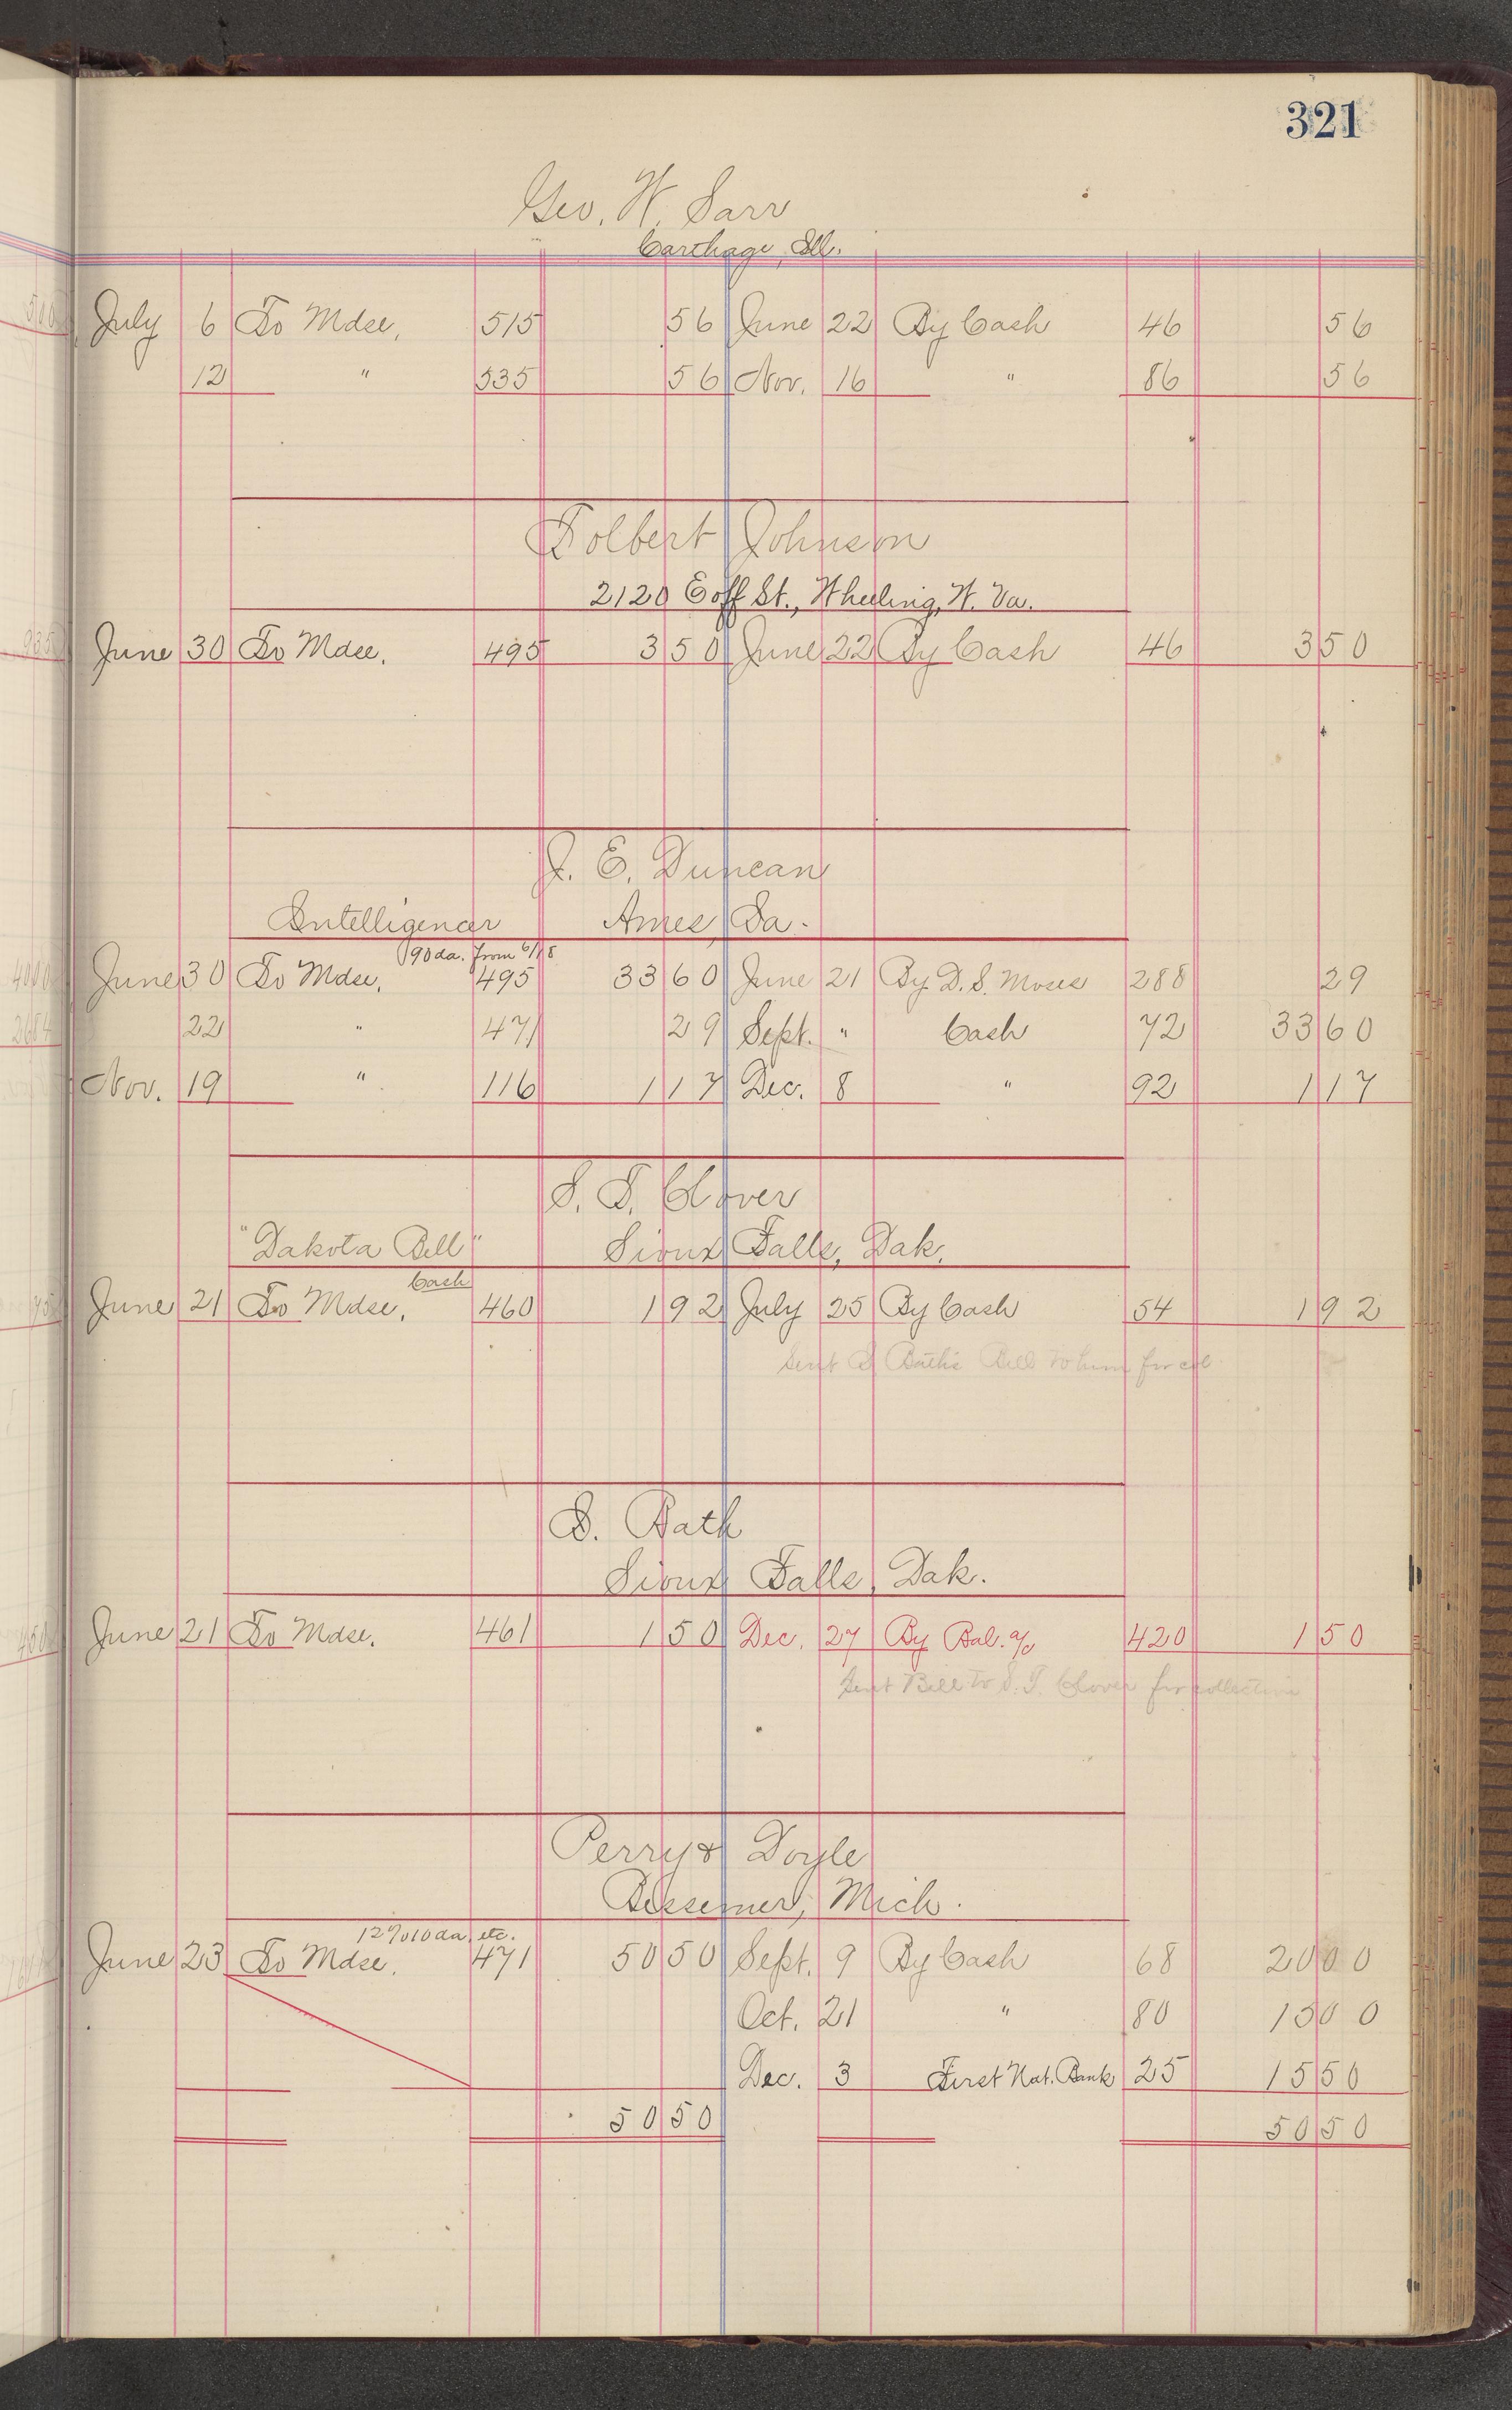 321
Geo. W. Sarr
Carthage, Ill.
July 6 To Mdse, 515 56 June 22 By Cash 46 56
12 " 535 56 Nov. 16 " 86 56
Tolbert Johnson
2120 Eoff St., Wheeling, W. Va.
June 30 To Mdse. 495 3 50 June 22 By Cash 46 3 50
J. E. Duncan
Intelligencer Ames, Ia.
90 da. from 6/18
June 30 To Mdse. 495 33 60 June 21 By D. S. Moses 288 29
22 " 471 29 Sept. " Cash 72 33 60
Nov. 19 " 116 1 17 Dec. 8 " 92 1 17
S. T. Clover
"Dakota Bell" Sioux Falls, Dak.
Cash
June 21 To Mdse, 460 1 92 July 25 By Cash 54 1 92
Sent S Bath's Bill to him for col.
S. Bath
Sioux Falls, Dak.
June 21 To Mdse. 461 1 50 Dec. 27 By Bal. a/c 420 1 50
Sent Bill to S. T. Clover for collection
Perry & Doyle
Bessemer, Mich.
12% 10 da. etc.
June 23 To Mdse. 471 50 50 Sept. 9 By Cash 68 20 00
Oct. 21 " 80 15 00
Dec. 3 First Nat. Bank 25 15 50
50 50 50 50